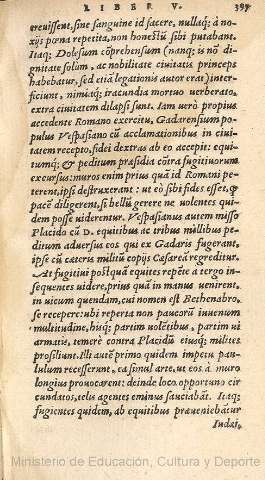 LIBER V. 397
creuissent, sine sanguine id facere, nullaq; à no-
xijs pœna repetita, non honestū sibi putabant.
Itaq; Dolesum cōprehensum (nanq; is nō di-
gnitate solùm, ac nobilitate ciuitatis princeps
habebatur, sed etiā legationis autor erat) inter-
ficiunt, nimiāq; iracundia mortuo uerberato,
extra ciuitatem dilapsi sunt. Iam uerò propius
accedente Romano exercitu, Gadarensium po-
pulus Vespasiano cū acclamationibus in ciui-
tatem recepto, fidei dextras ab eo accepit: equi-
tumq; & peditum præsidia cōtra fugitiuorum
excursus: muros enim prius quà id Romani pe-
terent, ipsi destruxerant: ut eò sibi fides esset, q
pacē diligerent, si bellū gerere ne uolentes qui-
dem posse uiderentur. Vespasianus autem misso
Placido cū D. equitibus ac tribus millibus pe-
ditum aduersus eos qui ex Gadaris fugerant,
ipse cū cæteris militū copijs Cæsareā regreditur.
At fugitiui postquā equites repēte a tergo in-
sequentes uidere, prius quā in manus uenirent,
in uicum quendam, cui nomen est Bethenabro,
se receperūt: ubi reperta non paucorū iuuenum
multitudine, hisq; partim uolētibus, partim ui
armatis, temerè contra Placidū eiusq; milites
prosiliunt. Illi autē primo quidem impetu pau-
lulum recesserunt, ca simul arte, ut eos à muro
longius prouocarent: deinde loco opportuno cir
cundatos, telis agentes eminus sauciabāt. Itaq;
fugientes quidem, ab equitibus præueniebātur
Iudæi,
Ministerio de Educación, Cultura y Deporte